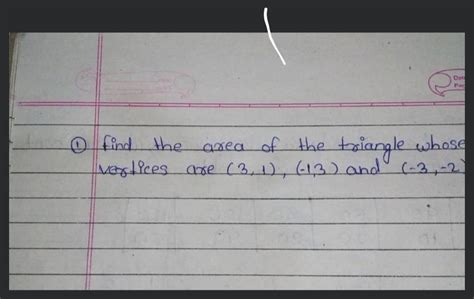 ① find the area of the triangle whose
vertices are (3,1), (-1,3) and (-3,-2)